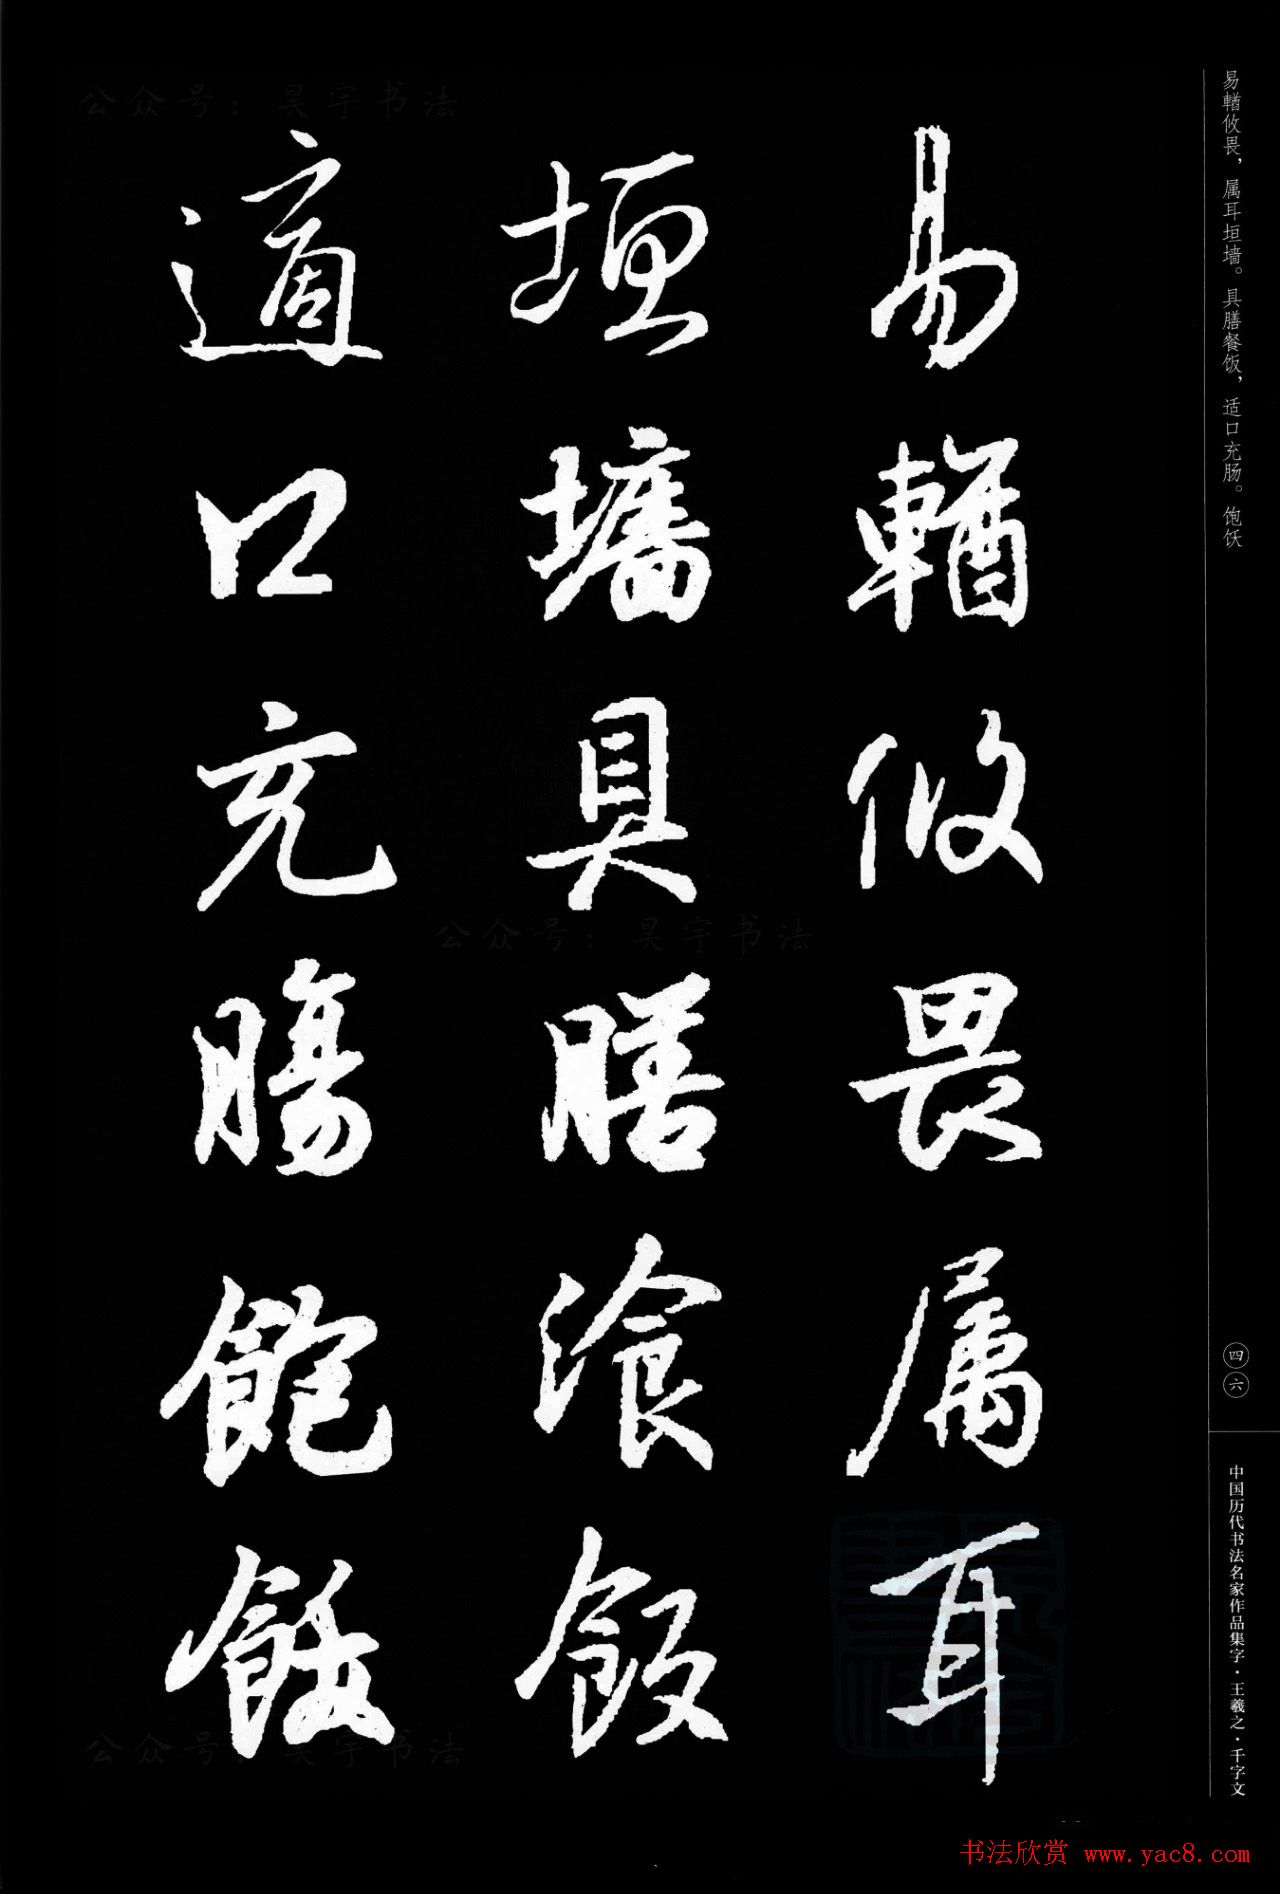 易輶攸畏，属耳垣墙。具膳餐饭，适口充肠。饱饫
四六
中国历代书法名家作品集字·王羲之·千字文
易輶攸畏属耳
垣墻具膳飡飯
適口充腸飽飫
公众号：昊宇书法
公众号：昊宇书法
公众号：昊宇书法
书法欣赏 www.yac8.com